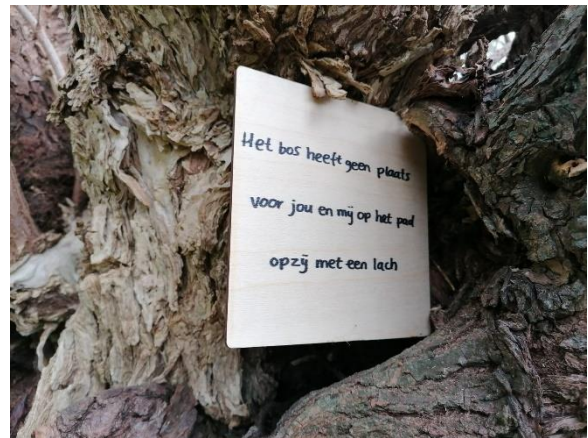 Het bos heeft geen plaats
voor jou en mij op het pad
opzij met een lach